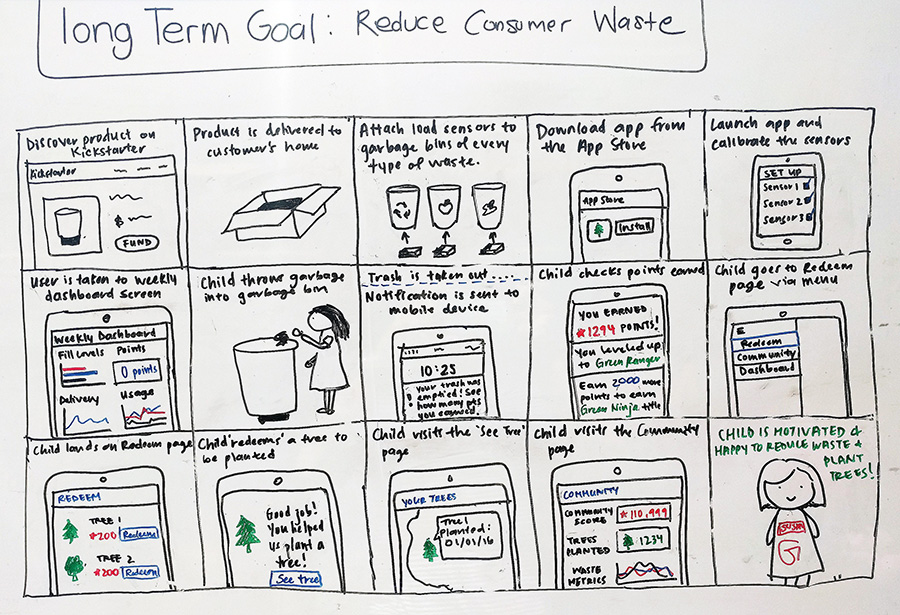 long Term Goal: Reduce Consumer Waste
Discover product on
Kickstarter
Kickstarter
$
FUND
Product is delivered to
customer's home
Attach load sensors to
garbage bins of every
type of waste.
Download app from
the App Store
App Store
Install
Launch app and
calibrate the sensors
SET UP
Sensor 1
Sensor 2
Sensor 3
User is taken to weekly
dashboard screen
Weekly Dashboard
Fill levels
Points
0 points
Delivery
Usage
Child throws garbage
into garbage bin
Trash is taken out ....
Notification is sent to
mobile device
10:25
your trash was
emptied! See
how many pts
you earned!
Child checks points earned
YOU EARNED
*1294 POINTS!
You leveled up
to Green Ranger
Earn 2000 more
points to earn
Green Ninja title
Child goes to Redeem
page via menu
Redeem
Community
Dashboard
Child lands on Redeem page
REDEEM
TREE 1
*200 Redeem
TREE 2
*200 Redeem
Child 'redeems' a tree to
be planted
Good job!
You helped
us plant a
tree!
See tree
Child visits the 'See Tree'
page
YOUR TREES
Tree 1
planted:
01/01/16
Child visits the Community
page
COMMUNITY
COMMUNITY
SCORE
*110,999
TREES
PLANTED
1234
WASTE
METRICS
CHILD IS MOTIVATED &
HAPPY TO REDUCE WASTE &
PLANT
TREES!